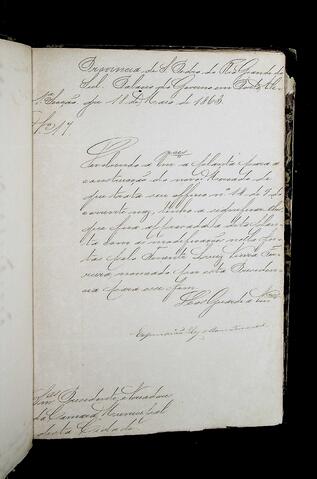 Provincia de S. Pedro do Rio Grande do
Sul. Palacio do Governo em Porto Ale
1ª Secção gre 11 de Maio de 1863.
Nº 17
a planta para a
construcção do novo Mercado de
que trata seu officio nº 18 de 7 do
corrente mez, tenho a
que fica approvada esta plan
ta com as modificações nella fei
tas pelo Tenente
nomeado por esta Presiden
cia para esse fim.
Deos Guarde a Vmces
Presidente e Vereadores
da Camara Municipal
desta Cidade.